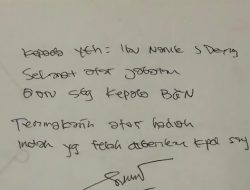 Kepada Yth: Ibu Nanik S Deyang
Selamat atas jabatan
Baru sbg Kepala BGN
Terimakasih atas hadiah
Indah yg telah diberikan kpd saya